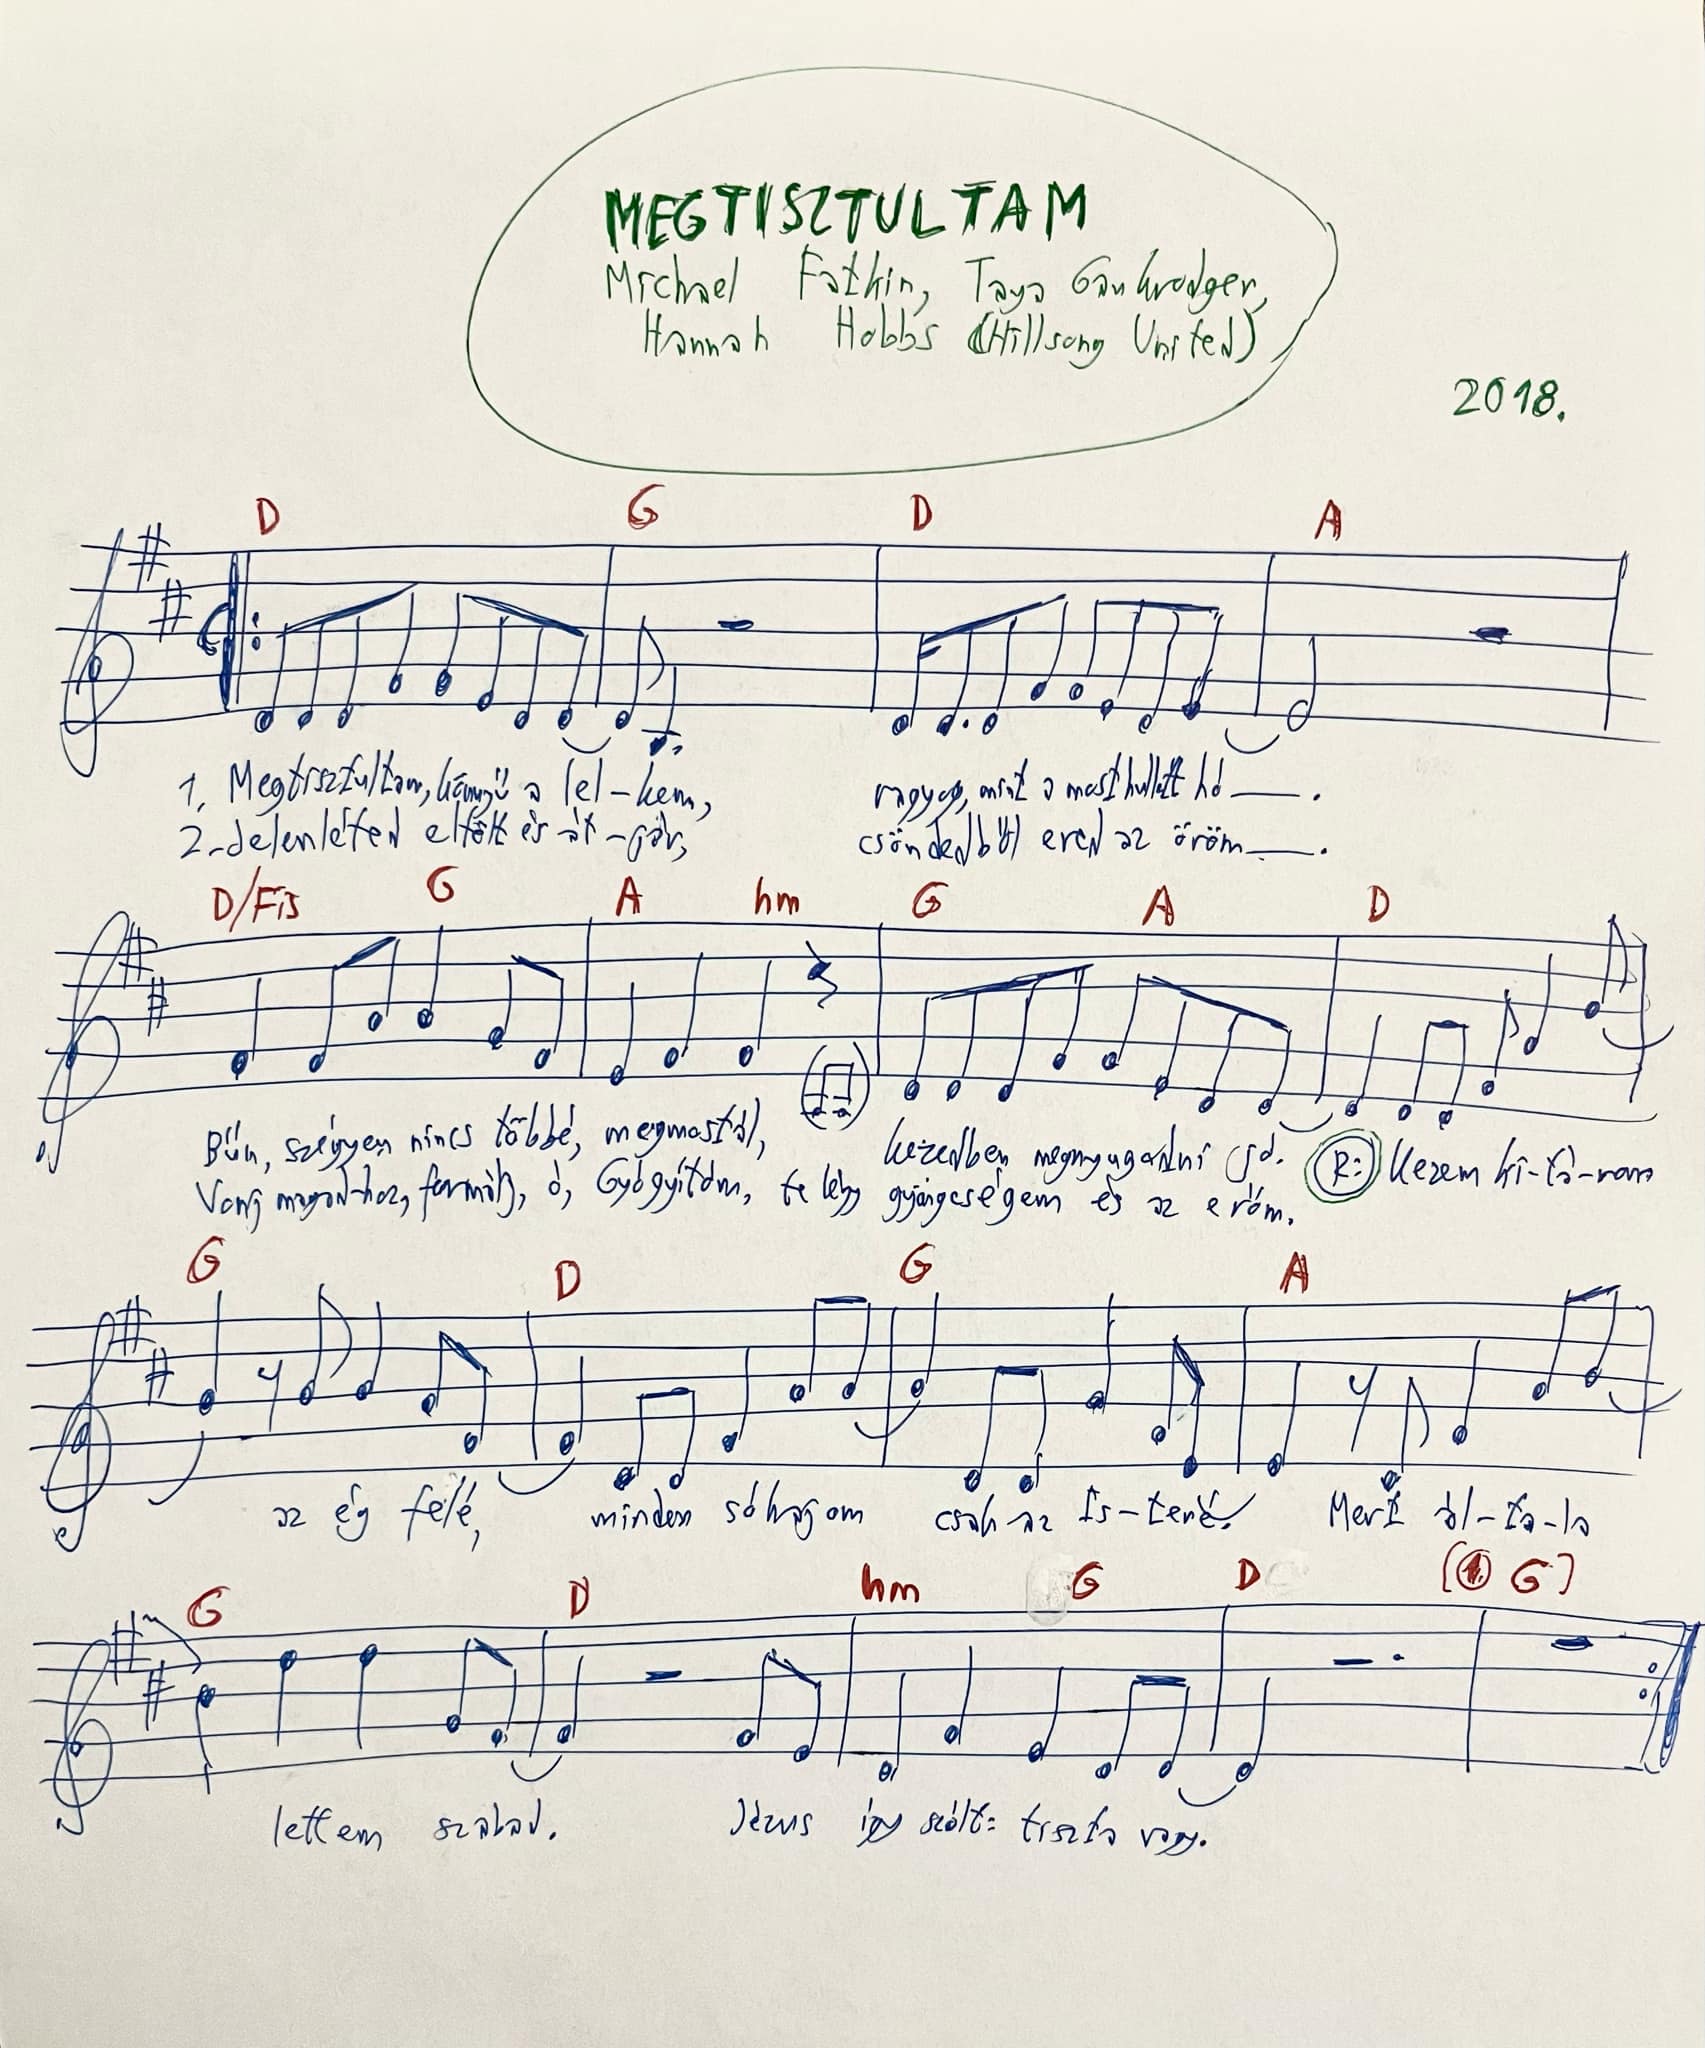 MEGTISZTULTAM
Michael Fatkin, Taya Gaukrodger,
Hannah Hobbs (Hillsong United)
2018.
D G D A
1. Megtisztultam, könnyű a lel-kem, ragyog, mint a most hullott hó___.
2. Jelenléted eltölt és át-jár, csöndedből ered az öröm___.
D/Fis G A hm G A D
Bűn, szégyen nincs többé, megmostál, kezedben megnyugodni jó. R: Kezem ki-tá-rom
Vonj magad-hoz, formálj, ó, Gyógyítóm, te légy gyöngeségem és az erőm.
G D G A
az ég felé, minden sóhajom csak az Is-tené. Mert ál-ta-la
G D hm G D (1. G)
lettem szabad. Jézus így szólt: tiszta vagy.